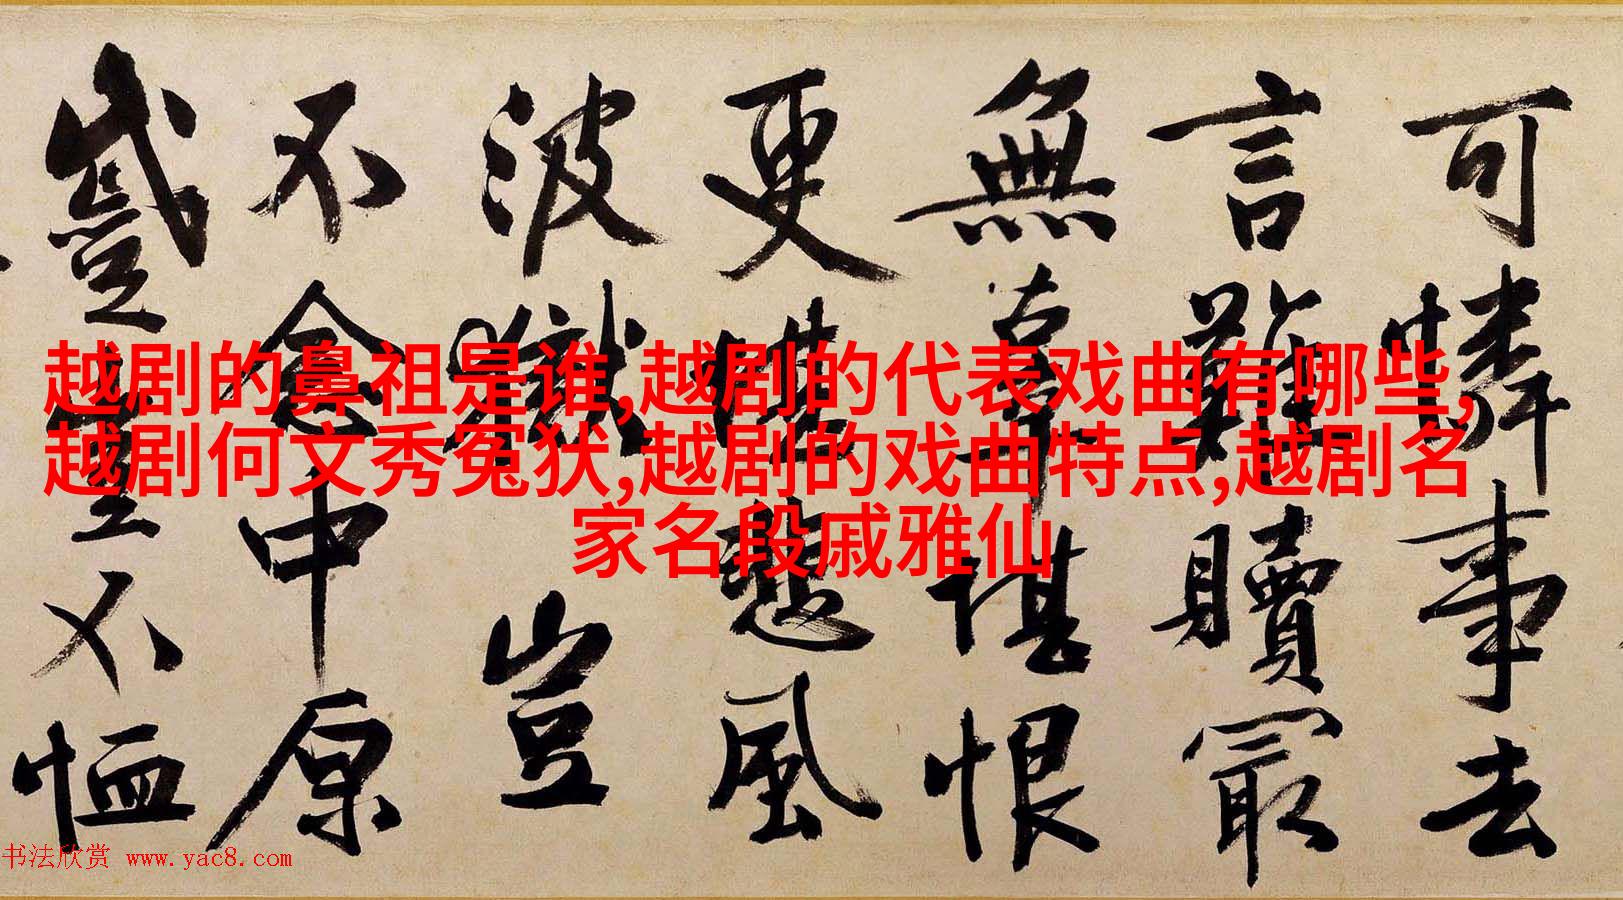 越剧的鼻祖是谁,越剧的代表戏曲有哪些,
越剧何文秀冤状,越剧的戏曲特点,越剧名
家名段戚雅仙
可憐事去
言難贖最
無辜堪恨
更堪風
波獄豈
不念中原
蹙豈不恤
书法欣赏 www.yac8.com